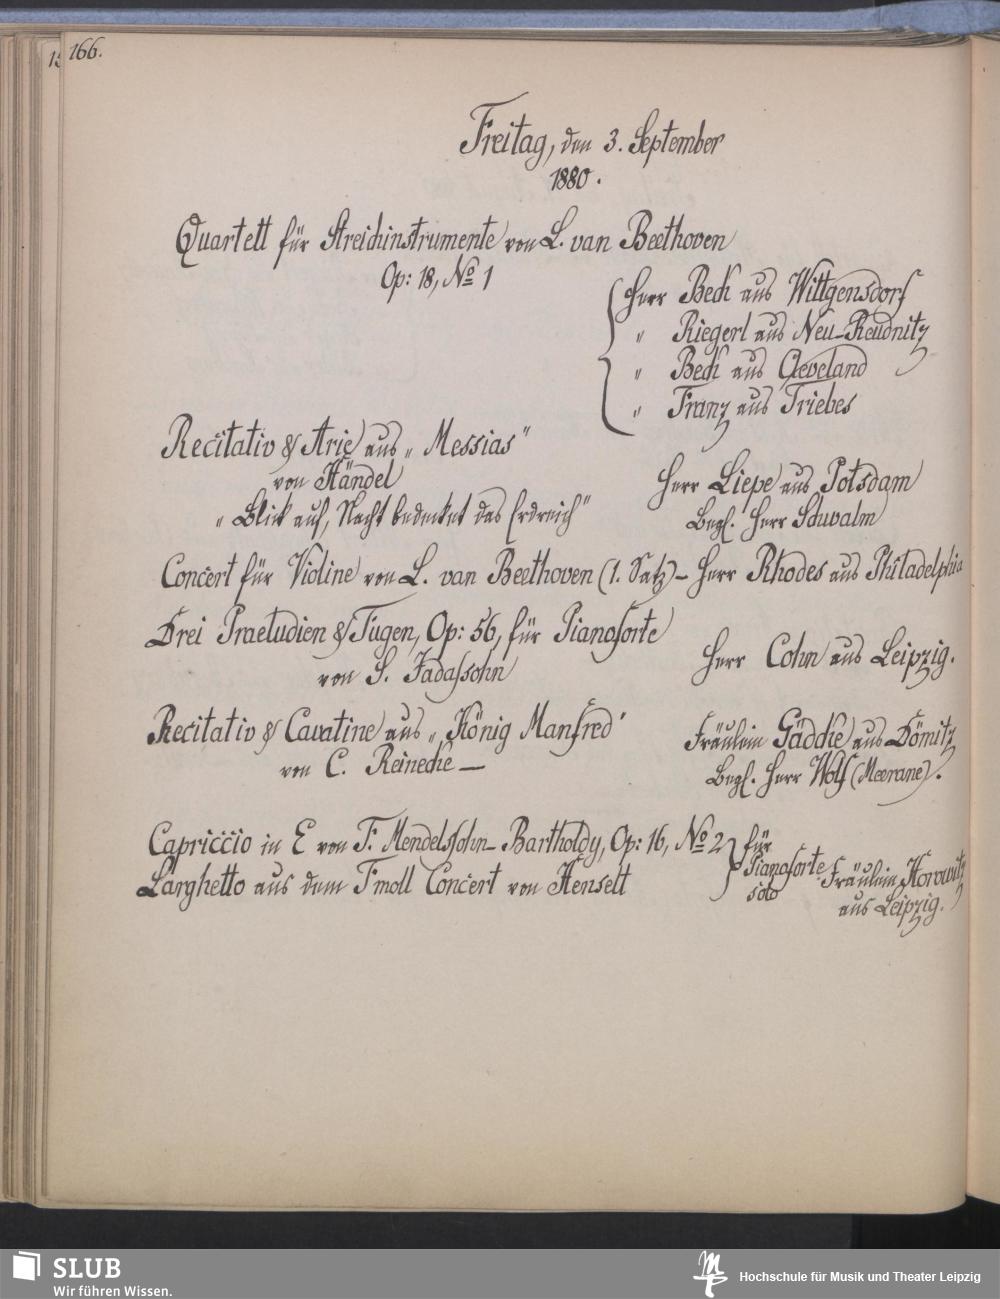 166.
Freitag, den 3. September
1880.
Quartett für Streichinstrumente von L. van Beethoven
Op: 18, No 1
Herr Beck aus Wittgensdorf
" Riegerl aus Neu-Reudnitz
" Beck aus Cleveland
" Franz aus Triebes
Recitativ & Arie aus „Messias"
von Händel
Herr Liepe aus Potsdam
„Blick auf, Nacht bedecket das Erdreich"
Begl. Herr Schwalm
Concert für Violine von L. van Beethoven (1. Satz) – Herr Rhodes aus Philadelphia
Drei Praeludien & Fugen, Op: 56, für Pianoforte
von S. Jadassohn
Herr Cohn aus Leipzig.
Recitativ & Cavatine aus „König Manfred'
von C. Reinecke —
Fräulein Gädcke aus Dömitz
Begl. Herr Wolf (Meerane).
Capriccio in E von F. Mendelssohn-Bartholdy, Op: 16, No 2
Larghetto aus dem Fmoll Concert von Henselt
für
Pianoforte
solo
Fräulein Horowitz
aus Leipzig.
SLUB
Wir führen Wissen.
Hochschule für Musik und Theater Leipzig